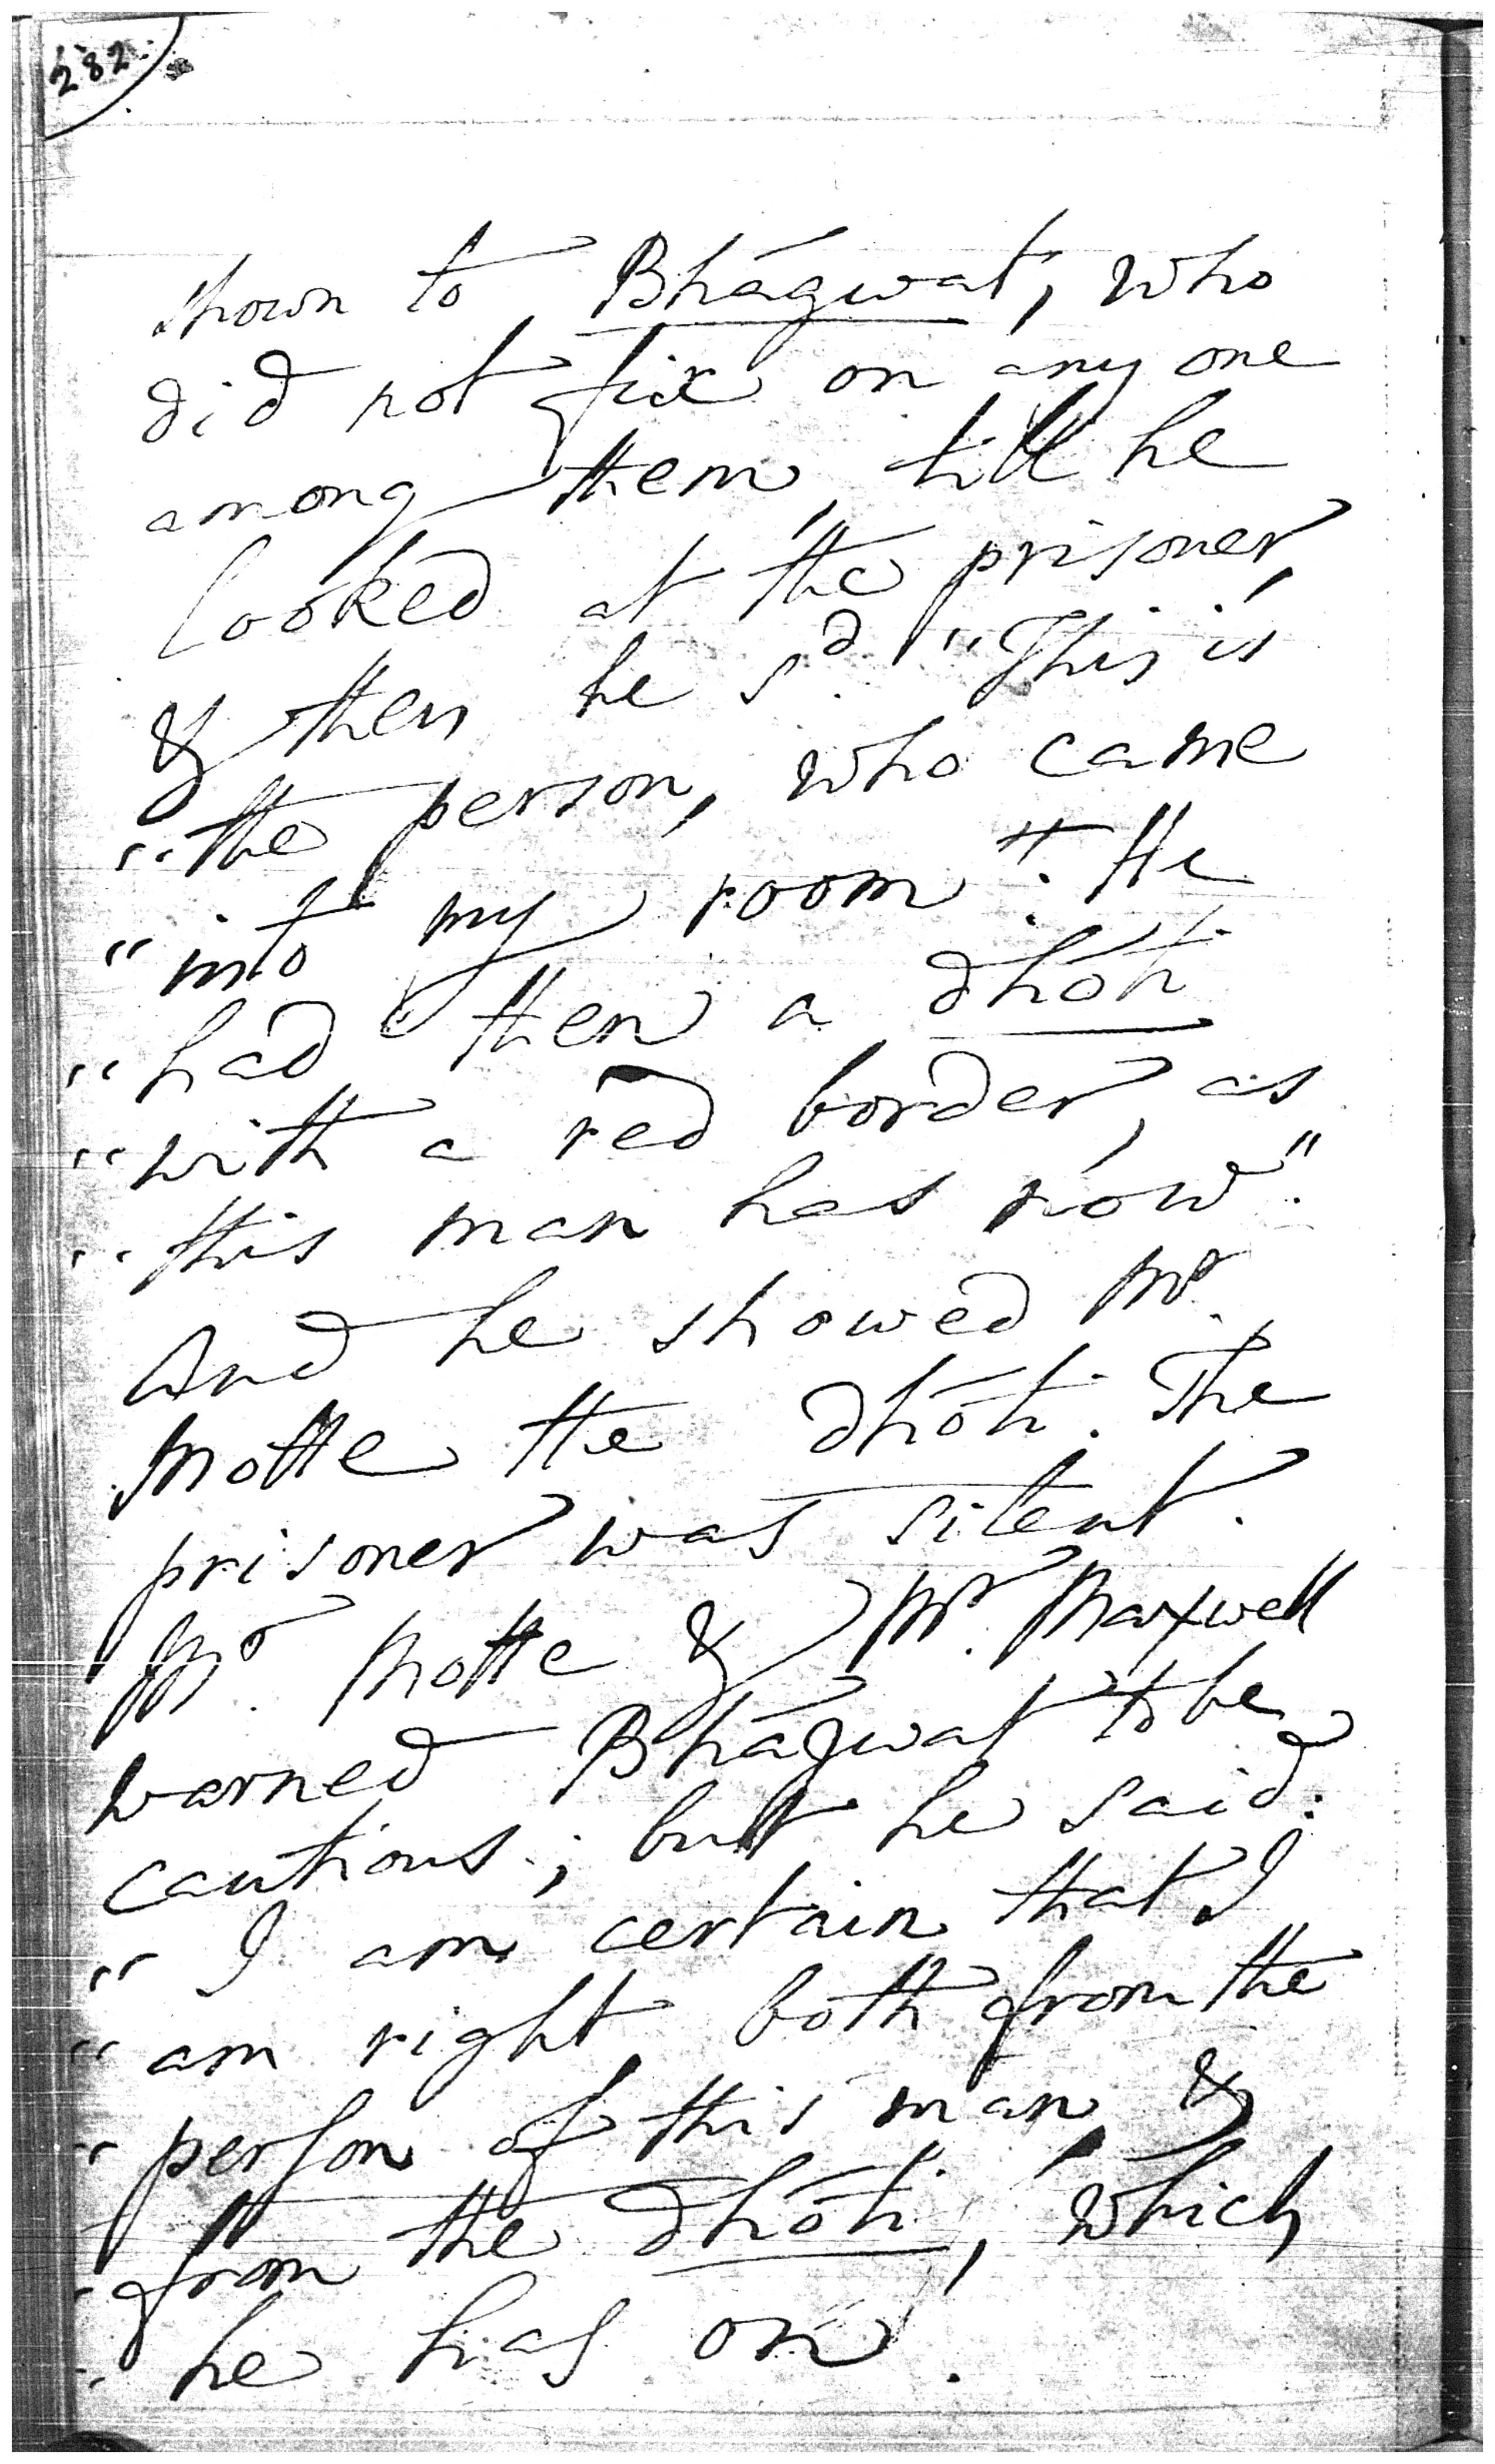 282.
shown to Bhágwat, who
did not fix on any one
among them, till he
looked at the prisoner,
& then he s.d "This is
"the person, who came
"into my room". He
"had then a dhóti
"with a red border, as
"this man has now".
And he showed Mr.
Motte the dhóti. The
prisoner was silent.
Mr. Motte & Mr. Maxwell
warned Bhágwat to be
cautious; but he said:
"I am certain that I
"am right, both from the
"person of this man, &
"from the dhóti, which
"he has on.